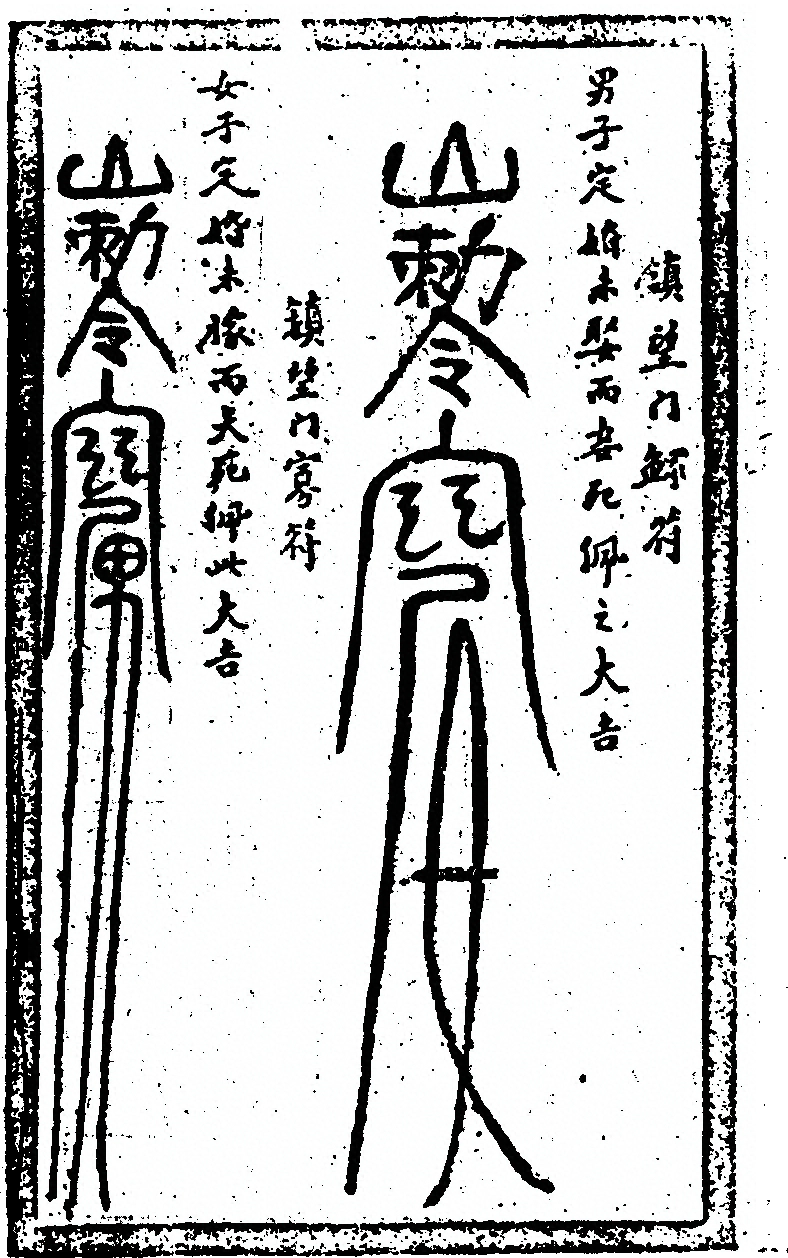 鎮望门鰥符
男子定婚未娶而妻死佩之大吉
勅令
鎮望门寡符
女子定婚未嫁而夫死佩此大吉
勅令